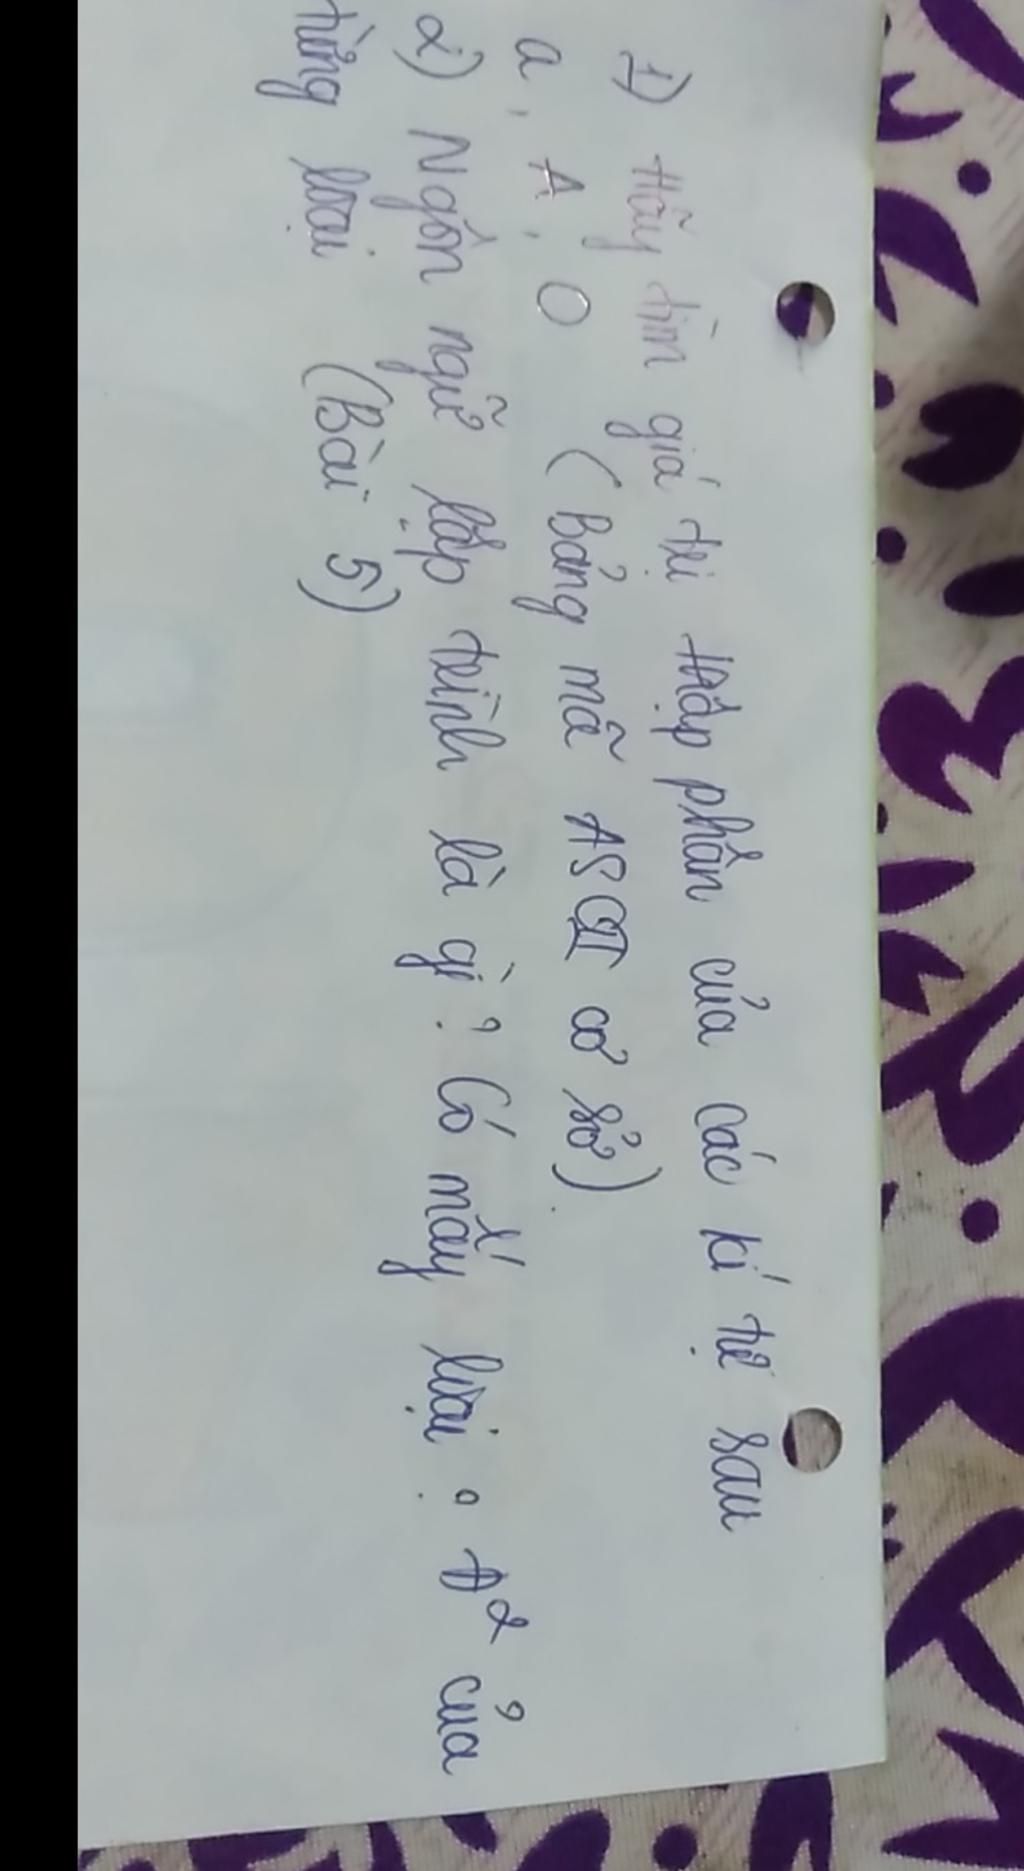 1) Hãy tìm giá trị thập phân của các kí tự sau
a, A, O (Bảng mã ASCII cơ sở)
2) Ngôn ngữ lập trình là gì? Có mấy loại? Đ² của
từng loại (Bài 5)